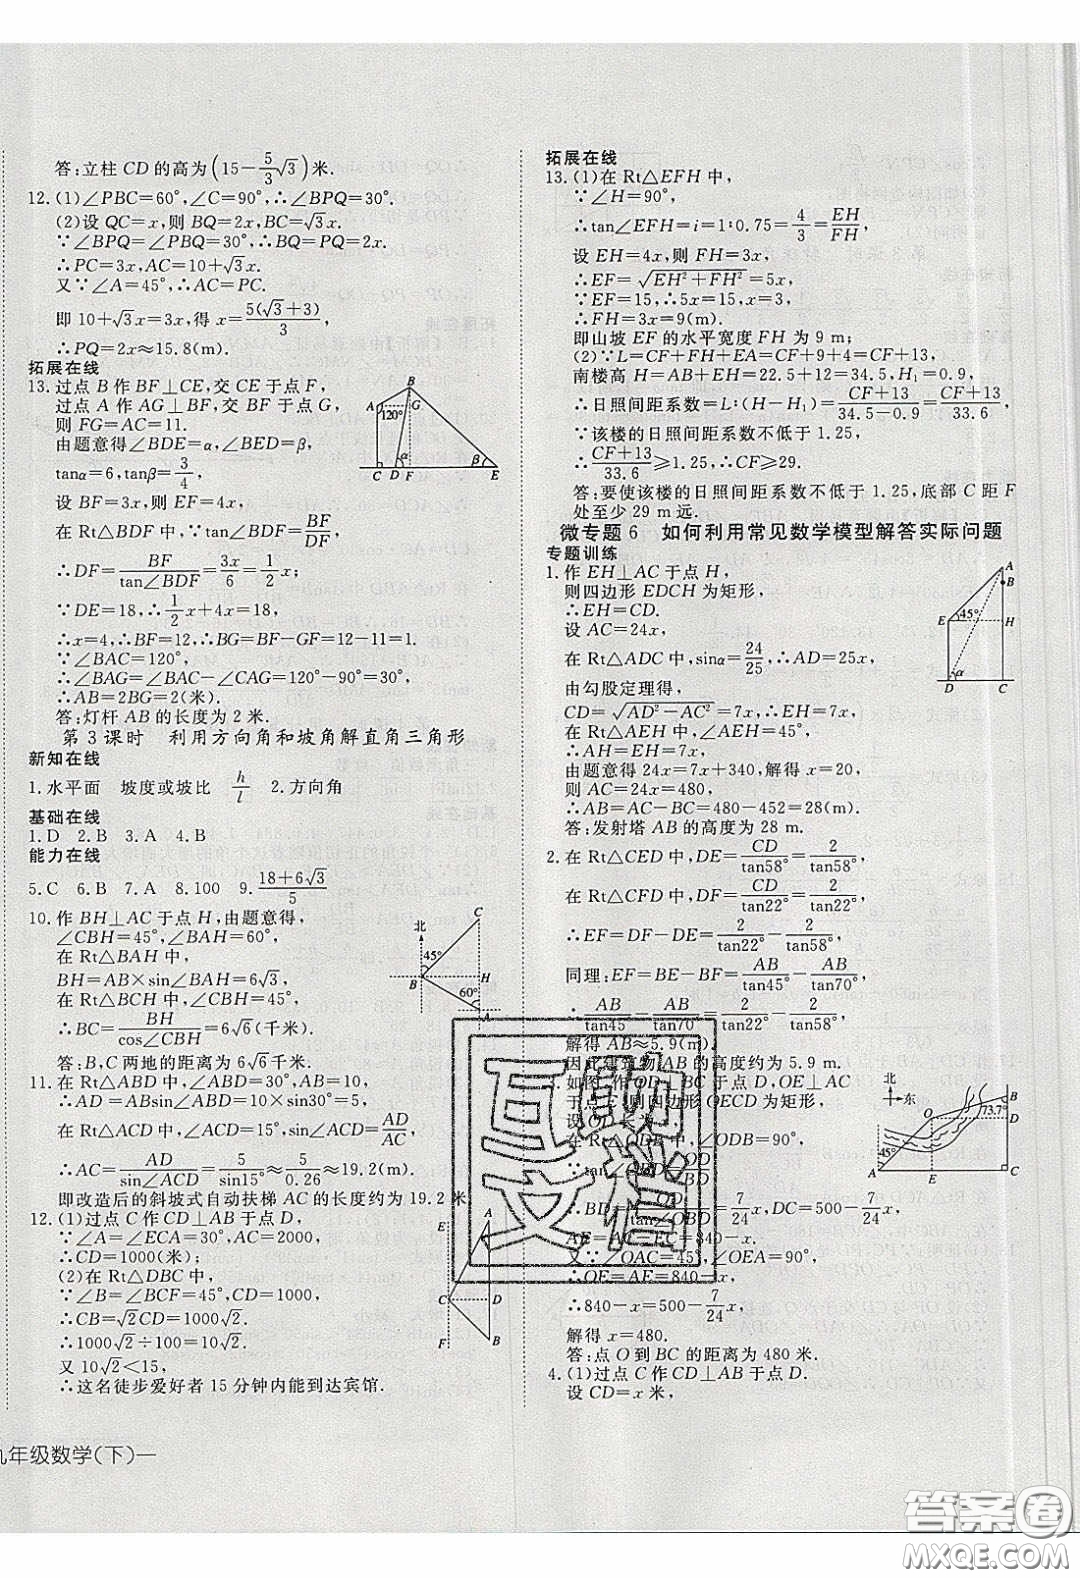 答:立柱 CD 的高为(15-5/3√3)米.
12.(1)∠PBC=60°,∠C=90°,∴∠BPQ=30°.
(2)设 QC=x,则 BQ=2x,BC=√3x.
∵∠BPQ=∠PBQ=30°,∴BQ=PQ=2x.
∴PC=3x,AC=10+√3x.
又∵∠A=45°,∴AC=PC.
即 10+√3x=3x,得 x=5(√3+3)/3,
∴PQ=2x≈15.8(m).
拓展在线
13.过点 B 作 BF⊥CE,交 CE 于点 F,
过点 A 作 AG⊥BF,交 BF 于点 G,
则 FG=AC=11.
由题意得∠BDE=α,∠BED=β,
tanα=6,tanβ=3/4,
设 BF=3x,则 EF=4x,
在 Rt△BDF 中,∵tan∠BDF=BF/DF,
∴DF=BF/tan∠BDF=3x/6=1/2x,
∵DE=18,∴1/2x+4x=18.
∴x=4,∴BF=12,∴BG=BF-GF=12-11=1.
∵∠BAC=120°,
∴∠BAG=∠BAC-∠CAG=120°-90°=30°.
∴AB=2BG=2(米).
答:灯杆 AB 的长度为 2 米.
A B G 120° C D α F β E
第 3 课时 利用方向角和坡角解直角三角形
新知在线
1.水平面 坡度或坡比 h/l 2.方向角
基础在线
1.D 2.B 3.A 4.B
能力在线
5.C 6.B 7.A 8.100 9.18+6√3/5
10.作 BH⊥AC 于点 H,由题意得,
∠CBH=45°,∠BAH=60°,
在 Rt△BAH 中,
BH=AB×sin∠BAH=6√3,
在 Rt△BCH 中,∠CBH=45°,
∴BC=BH/cos∠CBH=6√6(千米).
答:B,C 两地的距离为 6√6千米.
北 C 45° B H 60° A
11.在 Rt△ABD 中,∠ABD=30°,AB=10,
∴AD=ABsin∠ABD=10×sin30°=5.
在 Rt△ACD 中,∠ACD=15°,sin∠ACD=AD/AC,
∴AC=AD/sin∠ACD=5/sin15°≈5/0.26≈19.2(m).
即改造后的斜坡式自动扶梯 AC 的长度约为 19.2 米.
12.(1)过点 C 作 CD⊥AB 于点 D,
∵∠A=∠ECA=30°,AC=2000,
∴CD=1000(米);
(2)在 Rt△DBC 中,
∵∠B=∠BCF=45°,CD=1000,
∴CB=√2CD=1000√2.
∴1000√2÷100=10√2.
又 10√2<15,
∴这名徒步爱好者 15 分钟内能到达宾馆.
E A C D F B
九年级数学(下)—
拓展在线
13.(1)在 Rt△EFH 中,
∵∠H=90°,
∴tan∠EFH=i=1:0.75=4/3=EH/FH,
设 EH=4x,则 FH=3x,
∴EF=√(EH²+FH²)=5x,
∵EF=15,∴5x=15,x=3,
∴FH=3x=9(m).
即山坡 EF 的水平宽度 FH 为 9 m;
(2)∵L=CF+FH+EA=CF+9+4=CF+13,
南楼高 H=AB+EH=22.5+12=34.5,H₁=0.9,
∴日照间距系数=L:(H-H₁)=CF+13/34.5-0.9=CF+13/33.6,
∵该楼的日照间距系数不低于 1.25,
∴CF+13/33.6≥1.25,∴CF≥29.
答:要使该楼的日照间距系数不低于 1.25,底部 C 距 F
处至少 29 m远.
微专题 6 如何利用常见数学模型解答实际问题
专题训练
1.作 EH⊥AC 于点 H,
则四边形 EDCH 为矩形,
∴EH=CD.
设 AC=24x,
在 Rt△ADC 中,sinα=24/25,∴AD=25x,
由勾股定理得,
CD=√(AD²-AC²)=7x,∴EH=7x,
在 Rt△AEH 中,∠AEH=45°,
∴AH=EH=7x,
由题意得 24x=7x+340,解得 x=20,
则 AC=24x=480,
∴AB=AC-BC=480-452=28(m).
答:发射塔 AB 的高度为 28 m.
A B E 45° H D α C
2.在 Rt△CED 中,DE=CD/tan58°=2/tan58°,
在 Rt△CFD 中,DF=CD/tan22°=2/tan22°,
∴EF=DF-DE=2/tan22°-2/tan58°,
同理:EF=BE-BF=AB/tan45°-AB/tan70°
∴AB/tan45°-AB/tan70°=2/tan22°-2/tan58°,
解得 AB≈5.9(m).
因此建筑物 AB 的高度约为 5.9 m.
如图,作 OD⊥BC 于点 D,OE⊥AC
于点 E,则四边形 OECD 为矩形,
设 OD 长为 x,
在 Rt△ODB 中,∠ODB=90°,
北 东 O B 73.7° D 45° A E C
∴BD=OD/tan∠OBD=7/24x,DC=500-7/24x,
AE=AC-EC=840-x.
又∵∠OAC=45°,∠OEA=90°,
∴OE=AE=840-x,
∴840-x=500-7/24x,
解得 x=480.
答:点 O到 BC 的距离为 480 米.
4.(1)过点 C 作 CD⊥AB 于点 D.
设 CD=x 米,
互助文档
答案圈
MXQE.COM